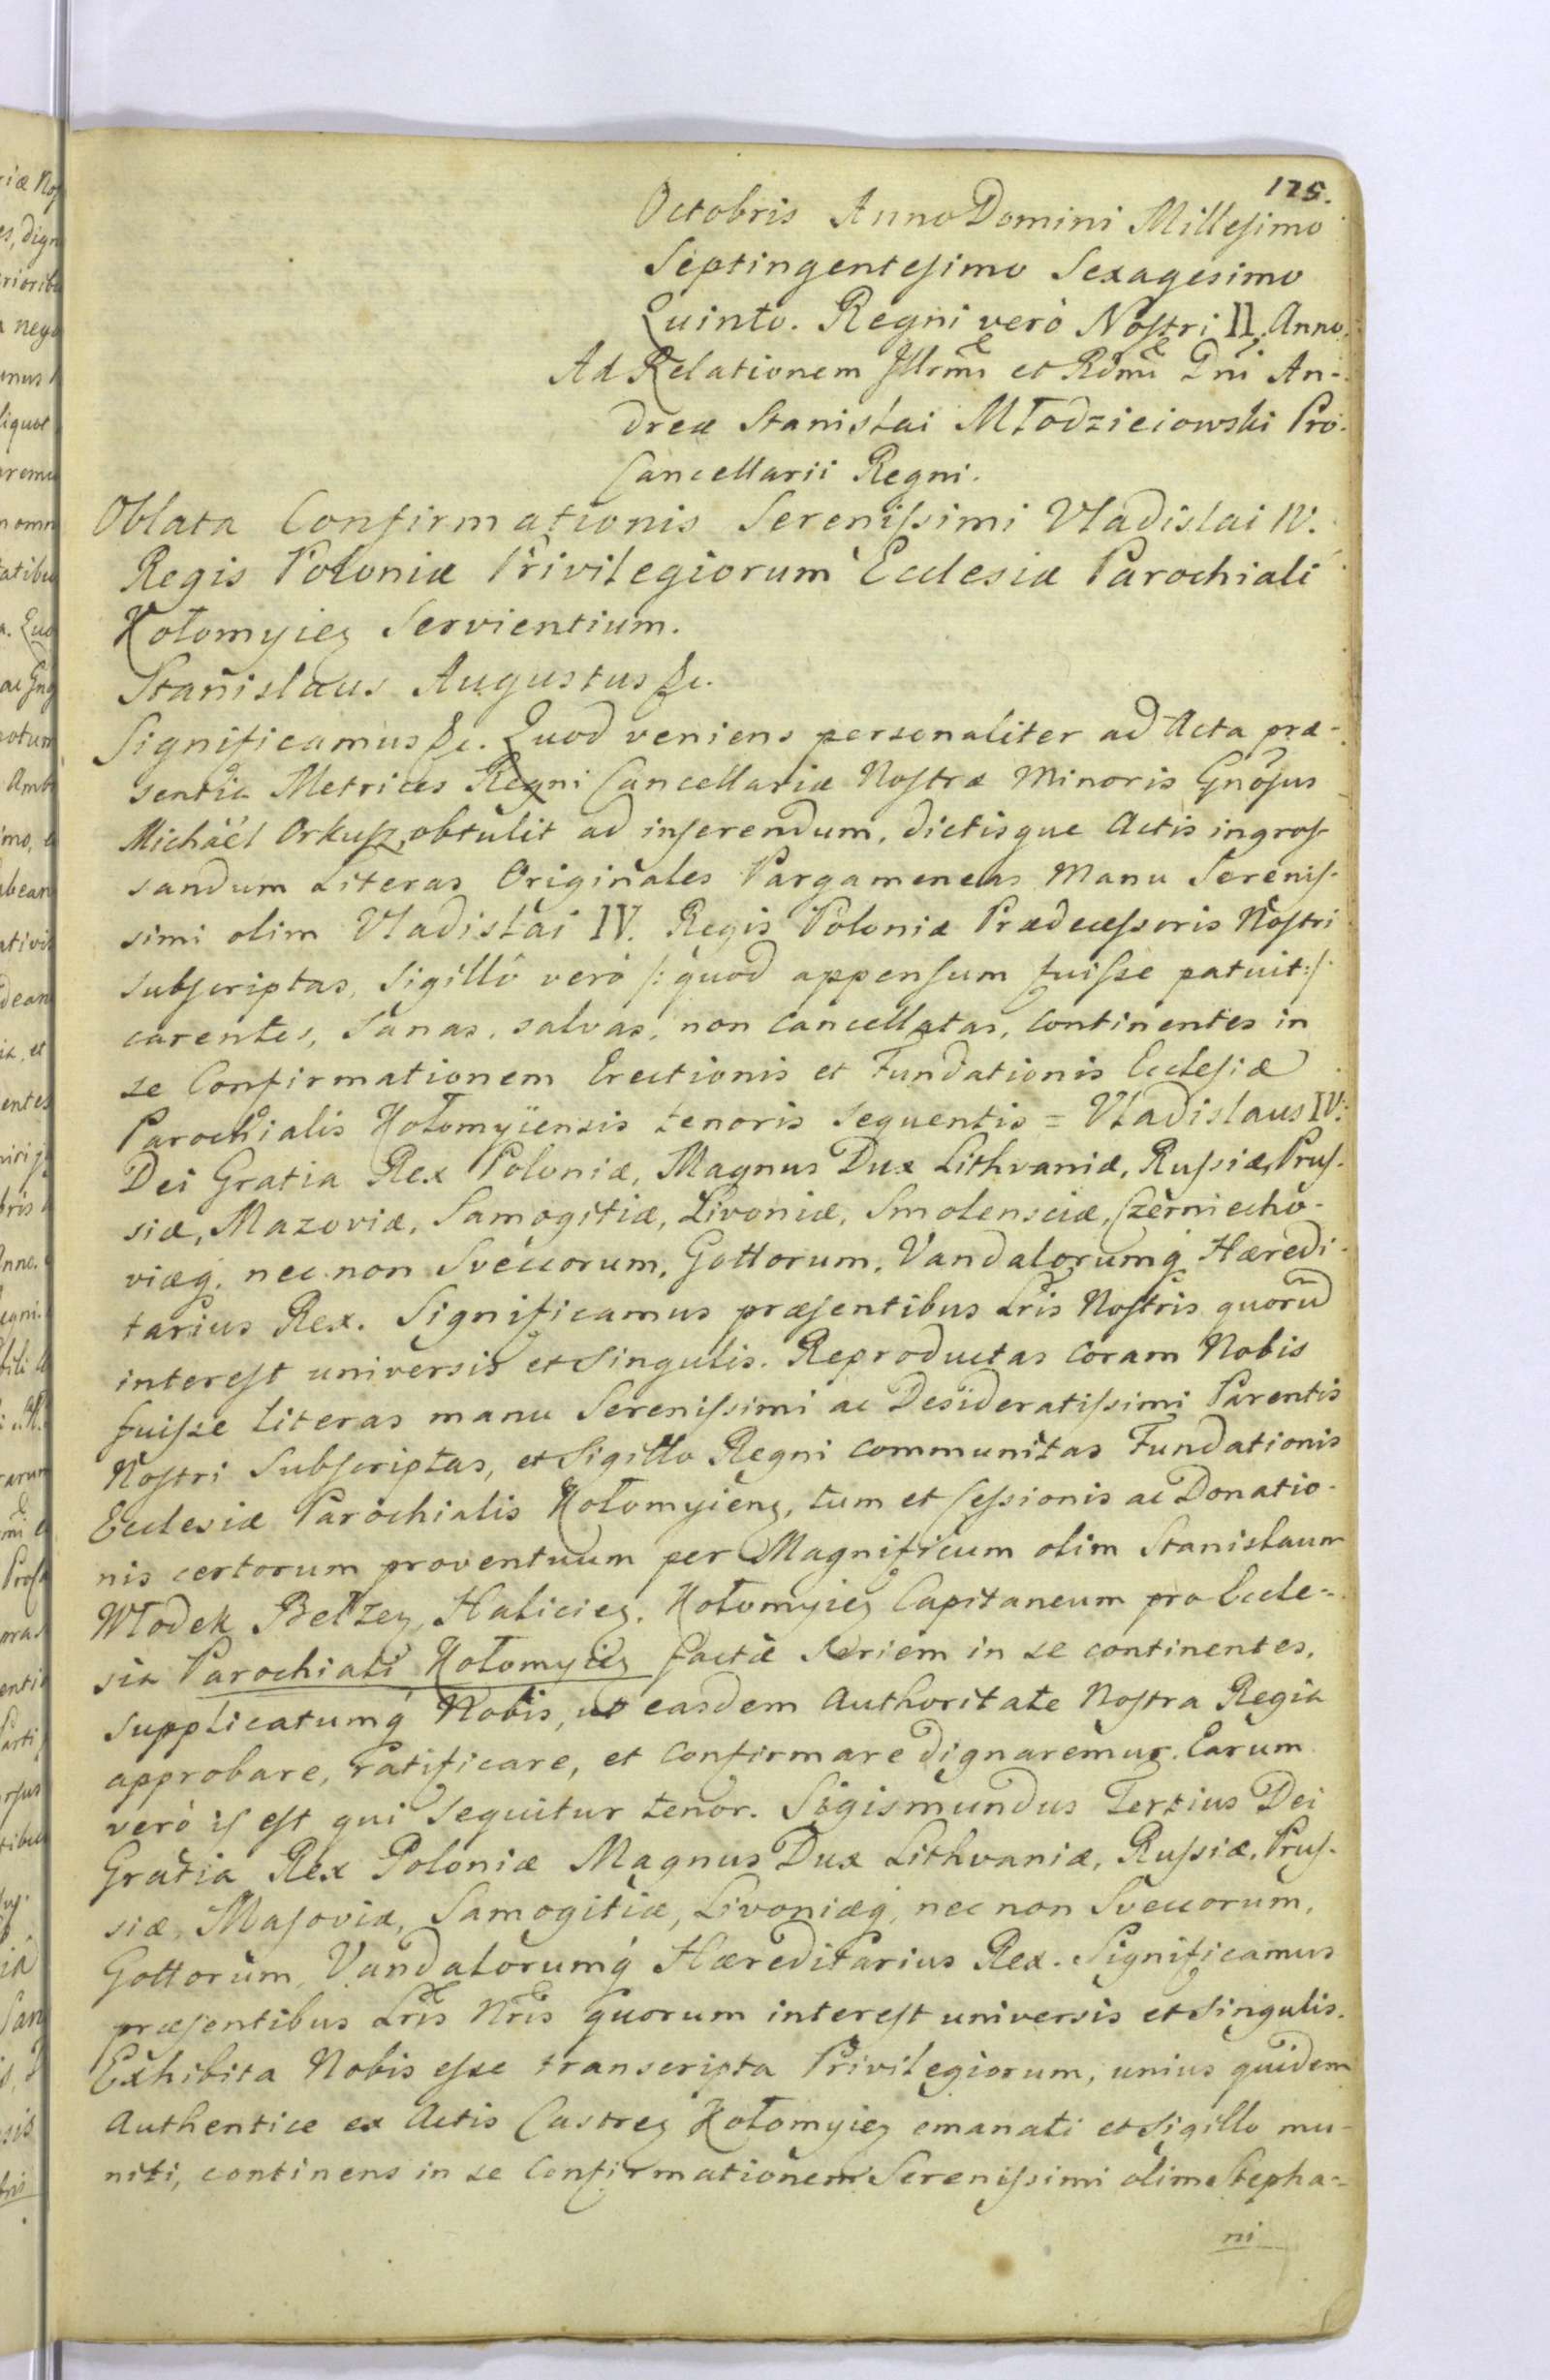 175.
Octobris Anno Domini Millesimo
Septingentesimo Sexagesimo
Quinto. Regni verò Nostri II. Anno.
Ad Relationem Jllrmi et Rdmi Dni An-
dreæ Stanislai Młodzieiowski Pro-
Cancellarii Regni.
Oblata Confirmationis Serenissimi Vladislai IV.
Regis Poloniæ Privilegiorum Ecclesiæ Parochiali
Kołomyiez Servientium.
Stanislaus Augustus &c.
Significamus &c. Quod veniens personaliter ad Acta præ-
sentia Metrices Regni Cancellariæ Nostræ Minoris Gnosus
Michaël Orkusz, obtulit ad inserendum, dictisque Actis ingros-
sandum Literas Originales Pargameneas Manu Serenis-
simi olim Vladislai IV. Regis Poloniæ Prædecessoris Nostri
subscriptas, Sigillô verò /: quod appensum fuisse patuit :/
carentes, Sanas, salvas, non cancellatas, continentes in
se Confirmationem Erectionis et Fundationis Ecclesiæ
Parochialis Kołomyiensis tenoris sequentis = Vladislaus IV:
Dei Gratia Rex Poloniæ, Magnus Dux Lithvaniæ, Russiæ, Prus-
siæ, Mazoviæ, Samogitiæ, Livoniæ, Smolensciæ, Czerniecho-
viæq. nec non Sveccorum, Gottorum, Vandalorumq Hæredi-
tarius Rex. Significamus præsentibus Lris Nostris quorũ
interest universis et singulis. Reproductas coram Nobis
fuisse literas manu Serenissimi ac Desideratissimi Parentis
Nostri Subscriptas, et Sigillo Regni communitas Fundationis
Ecclesiæ Parochialis Kołomyienz, tum et Cessionis ac Donatio-
nis certorum proventuum per Magnificum olim Stanislaum
Włodek Bełzez, Haliciez, Kołomyiez Capitaneum pro Eccle-
sia Parochiali Kołomyiez factæ seriem in se continentes,
supplicatumq Nobis, ut easdem Authoritate Nostra Regia
approbare, ratificare, et confirmare dignaremur. Earum
verò is est qui sequitur tenor. Sigismundus Tertius Dei
Gratia Rex Poloniæ Magnus Dux Lithvaniæ, Russiæ, Prus-
siæ, Masoviæ, Samogitiæ, Livoniæq, nec non Sveccorum,
Gottorum, Vandalorumq Hæreditarius Rex. Significamus
præsentibus Lris Nris quorum interest universis et singulis.
Exhibita Nobis esse transcripta Privilegiorum, unius quidem
Authentice ex Actis Castrez Kołomyiez emanati et sigillo mu-
niti, continens in se Confirmationem Serenissimi olim Stepha-
ni